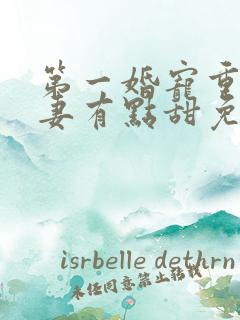 第一婚寵重
妻有點甜免
isrbelle dethrn
未任同意禁止转载